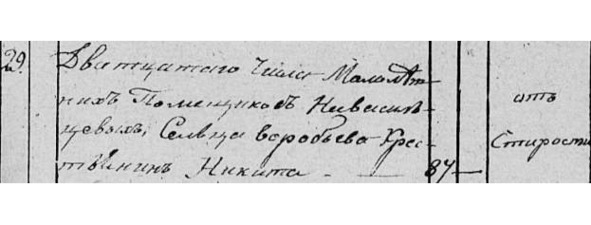 29. Дватцатаго Числа Малолѣт-
нихъ Помещиковъ Невасиль-
цевыхъ, Сельца воробьева Крес-
тьянинъ Никита - — 87 —
отъ
Старости